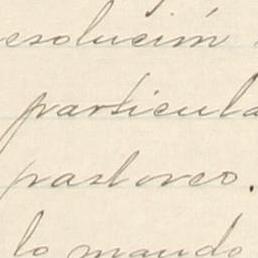 esolución
particula
pastoreo.
lo mando